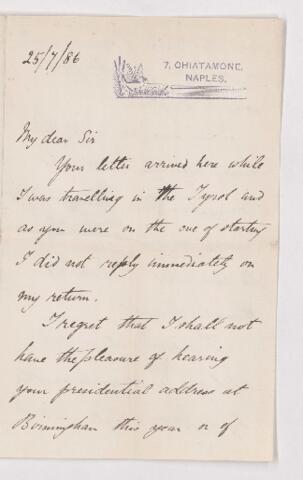 25/7/86
7, CHIATAMONE,
NAPLES.
My dear Sir
Your letter arrived here while
I was travelling in the Tyrol and
as you were on the eve of starting
I did not reply immediately on
my return.
I regret that I shall not
have the pleasure of hearing
your presidential address at
Birmingham this year or of